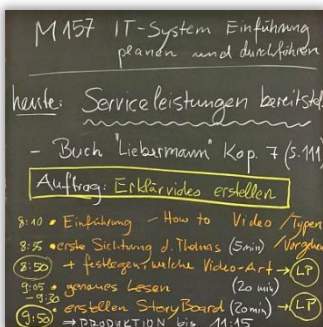 M157 IT-System Einführung
planen und durchführen
heute: Serviceleistungen bereitstel
- Buch "Liebermann" Kap. 7 (S.111
Auftrag: Erklärvideo erstellen
8:10 • Einführung - How to Video / Typen
8:35 • erste Sichtung d. Themas (5min) / Vorgehen
8:50 + festlegen, welche Video-Art → LP
9:05 - 9:30 • genaues Lesen (20 min)
9:50 • erstellen StoryBoard (20min) → LP
⇒ PRODUKTION bis 11:15